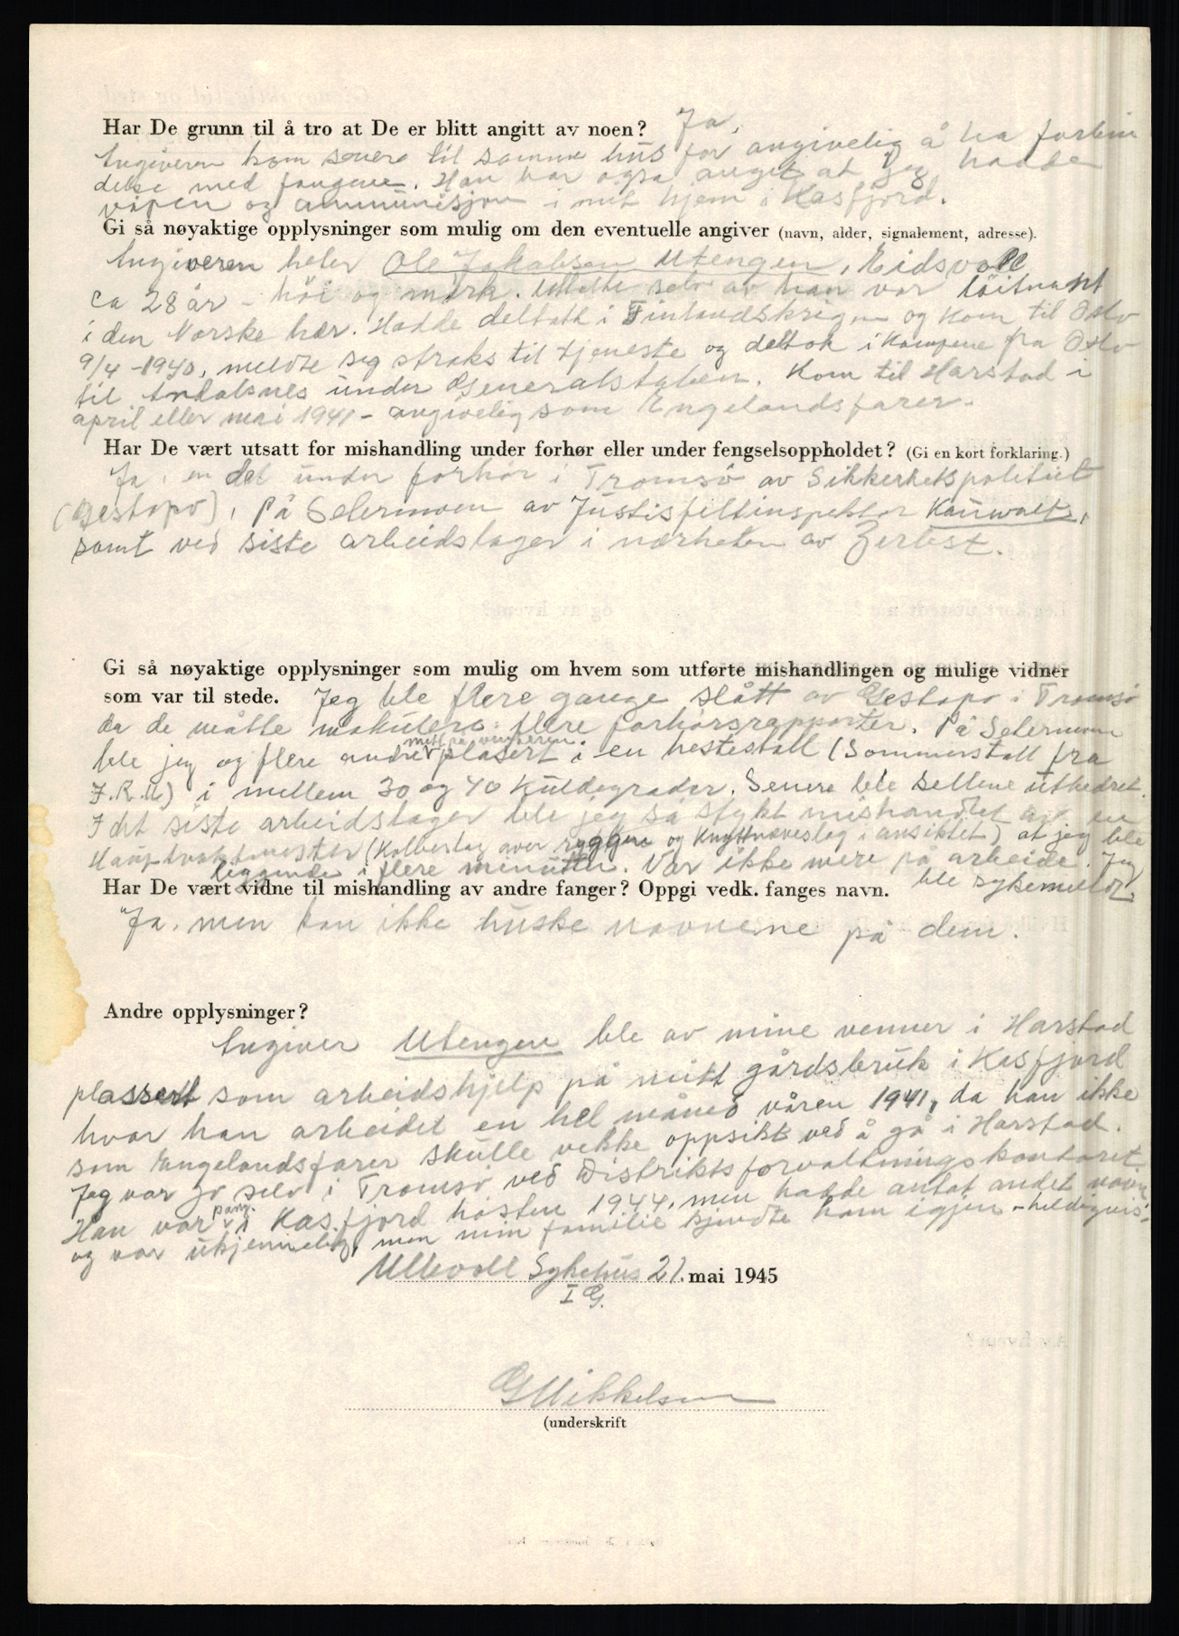 Har De grunn til å tro at De er blitt angitt av noen? Ja,
Angiveren kom senere til samme hus for angivelig å ha forbin
delse med fangene. Han har også anget at jeg hadde
våpen og ammunisjon i mit hjem i Kasfjord.
Gi så nøyaktige opplysninger som mulig om den eventuelle angiver (navn, alder, signalement, adresse).
Angiveren heter Ole Jakobsen Utengen, Eidsvoll
ca 28 år - høi og mørk. selv at han var løitnant
i den Norske hær. Hadde deltatt i Finlandskrigen og kom til Oslo
9/4-1940, meldte seg straks til tjeneste og deltok i kampene fra Oslo
til Åndalsnes under Generalstaben. Kom til Harstad i
april eller mai 1941 - angivelig som Engelandsfarer.
Har De vært utsatt for mishandling under forhør eller under fengselsoppholdet? (Gi en kort forklaring.)
Ja, en del under forhør i Tromsø av Sikkerhetspolitiet
(Gestapo), På Setermoen av Justisfeltinspektør
samt ved siste arbeidslager i nærheten av Zerbst.
Gi så nøyaktige opplysninger som mulig om hvem som utførte mishandlingen og mulige vidner
som var til stede. Jeg ble flere gange slått av Gestapo i Tromsø
da de måtte makulere flere forhørsrapporter. På Setermoen
midt på vinteren
ble jeg og flere andre plasert i en hestestall (Sommerstall fra
I.R.16) i mellem 30 og 40 kuldegrader. Senere ble cellene utbedret.
I det siste arbeidslager ble jeg så stykt mishandlet av en
Hauptvaktmester (Kolbeslag over ryggen og knyttneveslag i ansiktet) at jeg ble
liggende i flere minutter. Var ikke mere på arbeide. Jeg
ble sykemeldt.
Har De vært vidne til mishandling av andre fanger? Oppgi vedk. fanges navn.
Ja. men kan ikke huske navnene på dem.
Andre opplysninger?
Angiver Utengen ble av mine venner i Harstad
plassert som arbeidshjelp på mitt gårdsbruk i Kasfjord
hvor han arbeidet en hel måned våren 1941, da han ikke
som Engelandsfarer skulle vekke oppsikt ved å gå i Harstad.
Jeg var jo selv i Tromsø ved Distriktsforvaltningskontoret.
Han var påny i Kasfjord høsten 1944, men hadde antat andet navn
og var ukjennelig, men min familie kjendte ham igjen - heldigvis.
Ullevoll Sykehus 21. mai 1945
I G.
GMikkelsen
(underskrift